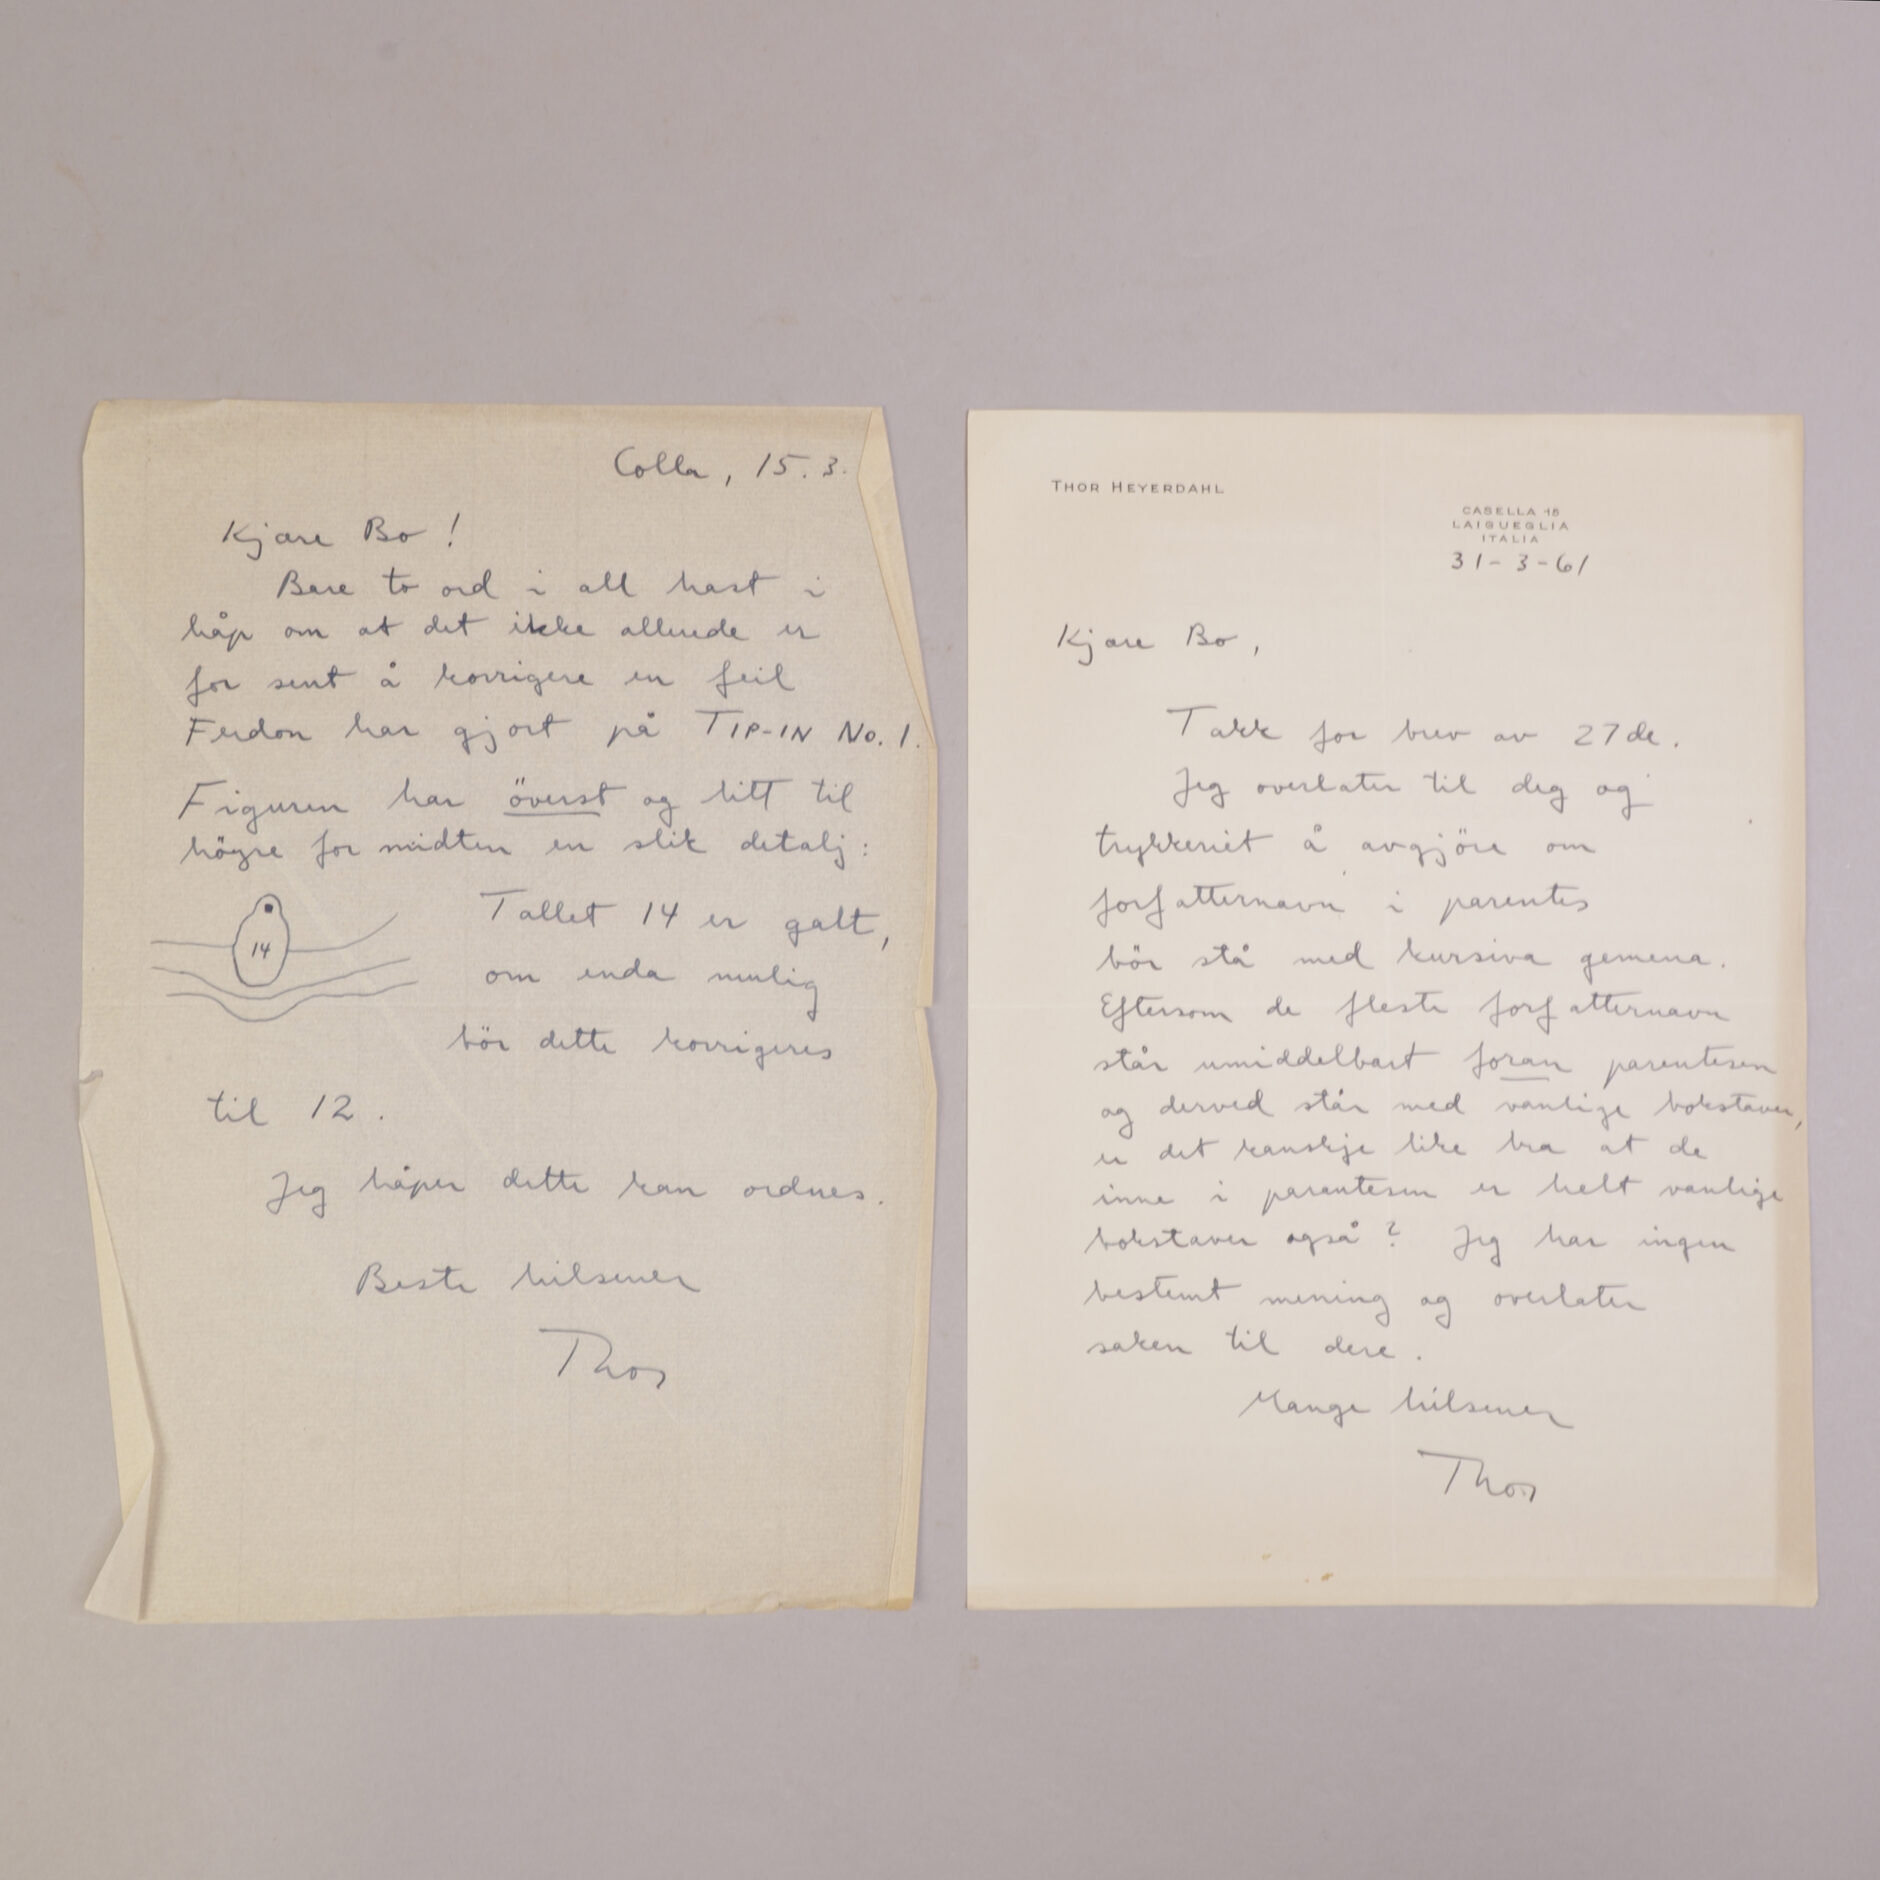 Colla, 15.3.
Kjære Bo!
Bare to ord i all hast i
håp om at det ikke allerede er
for sent å korrigere en feil
Ferdon har gjort på TIP-IN No. 1.
Figuren har överst og litt til
högre for midten en slik detalj:
14
Tallet 14 er galt,
om enda mulig
bör dette korrigeres
til 12.
Jeg håper dette kan ordnes.
Beste hilsener
Thor
THOR HEYERDAHL
CASELLA 18
LAIGUEGLIA
ITALIA
31-3-61
Kjære Bo,
Takk for brev av 27de.
Jeg overlater til deg og
trykkeriet å avgjöre om
forfatternavn i parentes
bör stå med kursiva gemena.
Eftersom de fleste forfatternavn
står umiddelbart foran parentesen
og derved står med vanlige bokstaver,
er det kanskje like bra at de
inne i parantesen er helt vanlige
bokstaver også? Jeg har ingen
bestemt mening og overlater
saken til dere.
Mange hilsener
Thor